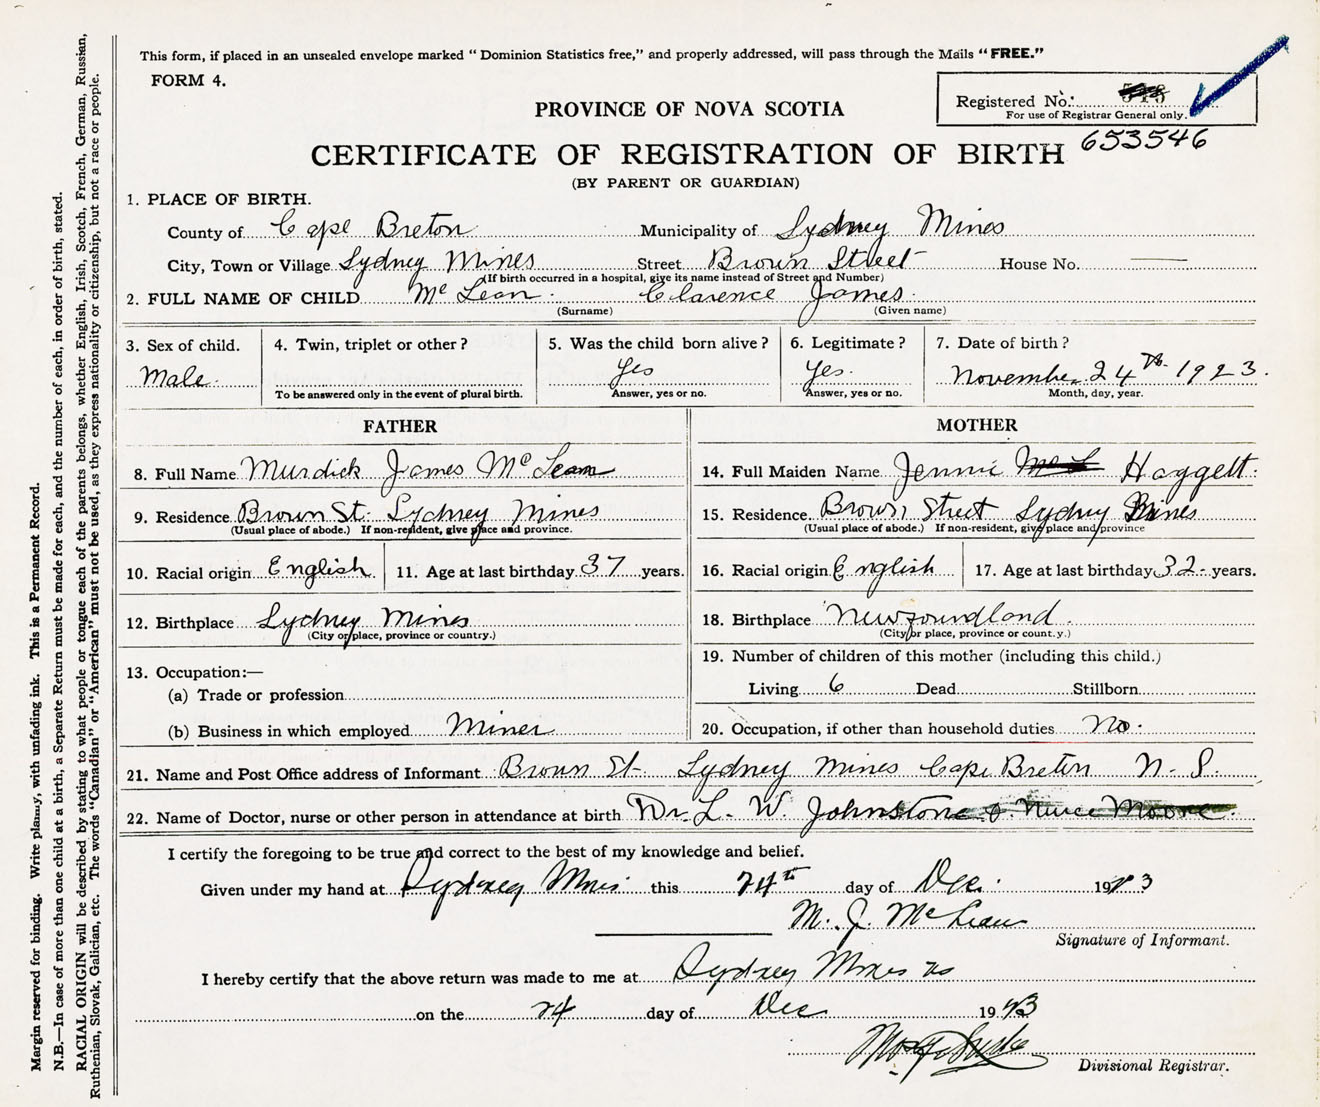 This form, if placed in an unsealed envelope marked "Dominion Statistics free," and properly addressed, will pass through the Mails "FREE."
FORM 4.
Registered No.
For use of Registrar General only.
653546
PROVINCE OF NOVA SCOTIA
CERTIFICATE OF REGISTRATION OF BIRTH
(BY PARENT OR GUARDIAN)
1. PLACE OF BIRTH.
County of Cape Breton Municipality of Sydney Mines
City, Town or Village Sydney Mines Street Brown Street House No. —
(If birth occurred in a hospital, give its name instead of Street and Number)
2. FULL NAME OF CHILD Mc Lean. Clarence James.
(Surname) (Given name)
3. Sex of child. 4. Twin, triplet or other? 5. Was the child born alive? 6. Legitimate? 7. Date of birth?
Male. Yes Yes. November 24th 1923.
To be answered only in the event of plural birth. Answer, yes or no. Answer, yes or no. Month, day, year.
FATHER
8. Full Name Murdick James Mc Lean
9. Residence Brown St. Sydney Mines
(Usual place of abode.) If non-resident, give place and province.
10. Racial origin English 11. Age at last birthday 37 years.
12. Birthplace Sydney Mines
(City or place, province or country.)
13. Occupation:—
(a) Trade or profession
(b) Business in which employed Miner
MOTHER
14. Full Maiden Name Jennie Haggett.
15. Residence. Brown Street Sydney Mines
(Usual place of abode.) If non-resident, give place and province
16. Racial origin English 17. Age at last birthday 32 years.
18. Birthplace Newfoundland.
(City or place, province or count.y.)
19. Number of children of this mother (including this child.)
Living 6 Dead Stillborn
20. Occupation, if other than household duties No.
21. Name and Post Office address of Informant Brown St. Sydney Mines Cape Breton N. S.
22. Name of Doctor, nurse or other person in attendance at birth Dr. L. W. Johnstone & Nurse Moore.
I certify the foregoing to be true and correct to the best of my knowledge and belief.
Given under my hand at Sydney Mines this 24th day of Dec. 1923
M. J. McLean
Signature of Informant.
I hereby certify that the above return was made to me at Sydney Mines NS
on the 24 day of Dec 1923
Divisional Registrar.
Margin reserved for binding. Write plainly, with unfading ink. This is a Permanent Record.
N.B.—In case of more than one child at a birth, a Separate Return must be made for each, and the number of each, in order of birth, stated.
RACIAL ORIGIN will be described by stating to what people or tongue each of the parents belongs, whether English, Irish, Scotch, French, German, Russian,
Ruthenian, Slovak, Galician, etc. The words "Canadian" or "American" must not be used, as they express nationality or citizenship, but not a race or people.